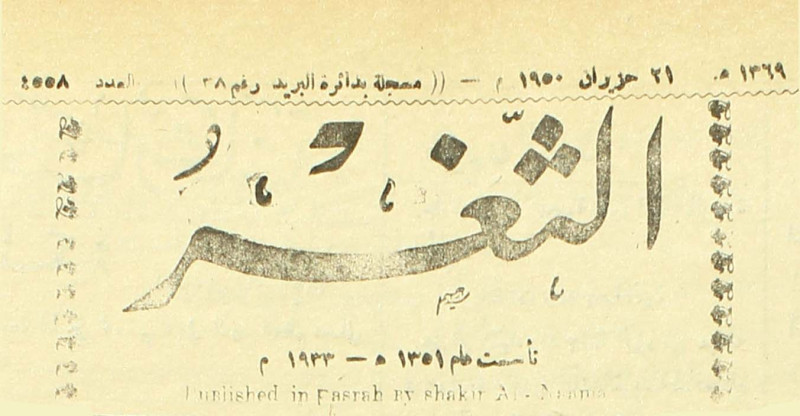 ١٣٦٩ ه. ٢١ حزيران ١٩٥٠ م — (( مسجلة بدائرة البريد رقم ٣٨ )) — العدد ٤٥٥٨
الثغر
تأسست عام ١٣٥١ ه — ١٩٣٣ م
Published in Basrah By shakir AL-Naama